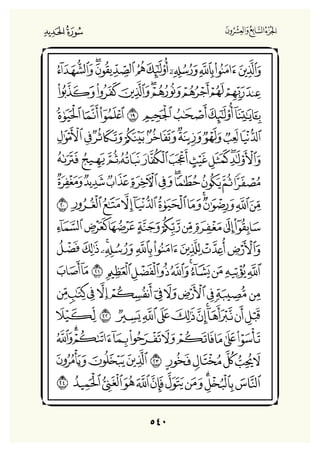 الجزء السابع والعشرون سورة الحديد
وَٱلَّذِينَ ءَامَنُوا۟ بِٱللَّهِ وَرُسُلِهِۦٓ أُو۟لَٰٓئِكَ هُمُ ٱلصِّدِّيقُونَ ۖ وَٱلشُّهَدَآءُ
عِندَ رَبِّهِمْ لَهُمْ أَجْرُهُمْ وَنُورُهُمْ ۖ وَٱلَّذِينَ كَفَرُوا۟ وَكَذَّبُوا۟
بِـَٔايَٰتِنَآ أُو۟لَٰٓئِكَ أَصْحَٰبُ ٱلْجَحِيمِ ١٩ ٱعْلَمُوٓا۟ أَنَّمَا ٱلْحَيَوٰةُ
ٱلدُّنْيَا لَعِبٌ وَلَهْوٌ وَزِينَةٌ وَتَفَاخُرٌۢ بَيْنَكُمْ وَتَكَاثُرٌ فِى ٱلْأَمْوَٰلِ
وَٱلْأَوْلَٰدِ ۖ كَمَثَلِ غَيْثٍ أَعْجَبَ ٱلْكُفَّارَ نَبَاتُهُۥ ثُمَّ يَهِيجُ فَتَرَىٰهُ
مُصْفَرًّا ثُمَّ يَكُونُ حُطَٰمًا ۖ وَفِى ٱلْءَاخِرَةِ عَذَابٌ شَدِيدٌ وَمَغْفِرَةٌ
مِّنَ ٱللَّهِ وَرِضْوَٰنٌ ۚ وَمَا ٱلْحَيَوٰةُ ٱلدُّنْيَآ إِلَّا مَتَٰعُ ٱلْغُرُورِ ٢٠
سَابِقُوٓا۟ إِلَىٰ مَغْفِرَةٍ مِّن رَّبِّكُمْ وَجَنَّةٍ عَرْضُهَا كَعَرْضِ ٱلسَّمَآءِ
وَٱلْأَرْضِ أُعِدَّتْ لِلَّذِينَ ءَامَنُوا۟ بِٱللَّهِ وَرُسُلِهِۦ ۚ ذَٰلِكَ فَضْلُ
ٱللَّهِ يُؤْتِيهِ مَن يَشَآءُ ۚ وَٱللَّهُ ذُو ٱلْفَضْلِ ٱلْعَظِيمِ ٢١ مَآ أَصَابَ
مِن مُّصِيبَةٍ فِى ٱلْأَرْضِ وَلَا فِىٓ أَنفُسِكُمْ إِلَّا فِى كِتَٰبٍ مِّن
قَبْلِ أَن نَّبْرَأَهَآ ۚ إِنَّ ذَٰلِكَ عَلَى ٱللَّهِ يَسِيرٌ ٢٢ لِّكَيْلَا
تَأْسَوْا۟ عَلَىٰ مَا فَاتَكُمْ وَلَا تَفْرَحُوا۟ بِمَآ ءَاتَىٰكُمْ ۗ وَٱللَّهُ
لَا يُحِبُّ كُلَّ مُخْتَالٍ فَخُورٍ ٢٣ ٱلَّذِينَ يَبْخَلُونَ وَيَأْمُرُونَ
ٱلنَّاسَ بِٱلْبُخْلِ ۗ وَمَن يَتَوَلَّ فَإِنَّ ٱللَّهَ هُوَ ٱلْغَنِىُّ ٱلْحَمِيدُ ٢٤
٥٤٠